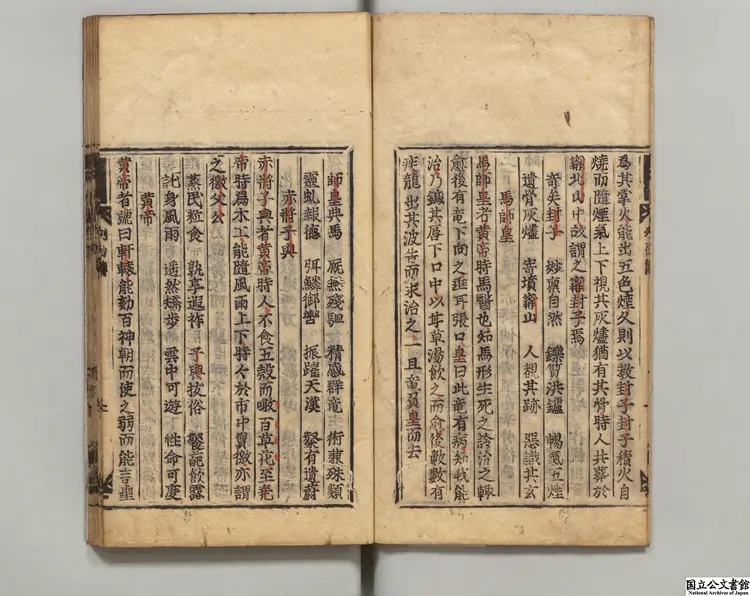 為其掌火能出五色煙久則以教封子封子積火自
燒而隨煙氣上下視其灰燼猶有其骨時人共葬於
甯北山中故謂之甯封子焉
奇矣封子 妙稟自然 鑠質洪鑪 暢氣五煙
遺骨灰燼 寄墳甯山 人覩其跡 惡識其玄
馬師皇
馬師皇者黃帝時馬醫也知馬形生死之診治之輒
愈後有竜下向之垂耳張口皇曰此竜有病知我能
治乃鍼其唇下口中以甘草湯飲之而愈後數數有
疾龍出其波告而求治之一旦竜負皇而去
師皇典馬 厩無殘駟 精感群竜 術兼殊類
靈虬報德 弭鱗御轡 振躍天漢 粲有遺蔚
赤將子輿
赤將子輿者黃帝時人不食五穀而噉百草花至堯
帝時為木工能隨風雨上下時々於市中賣繳亦謂
之繳父公
蒸民粒食 孰享遐祚 子輿拔俗 餐葩飲露
託身風雨 遥然矯步 雲中可遊 性命可度
黃帝
黃帝者號曰軒轅能劾百神朝而使之弱而能言聖
国立公文書館
National Archives of Japan